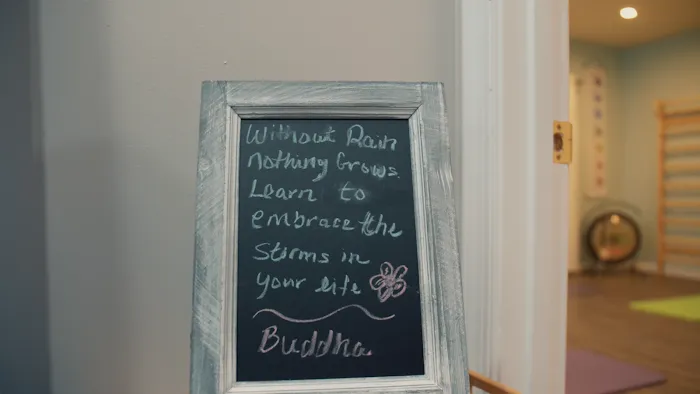 Without Rain
nothing Grows.
Learn to
embrace the
storms in
your life
Buddha